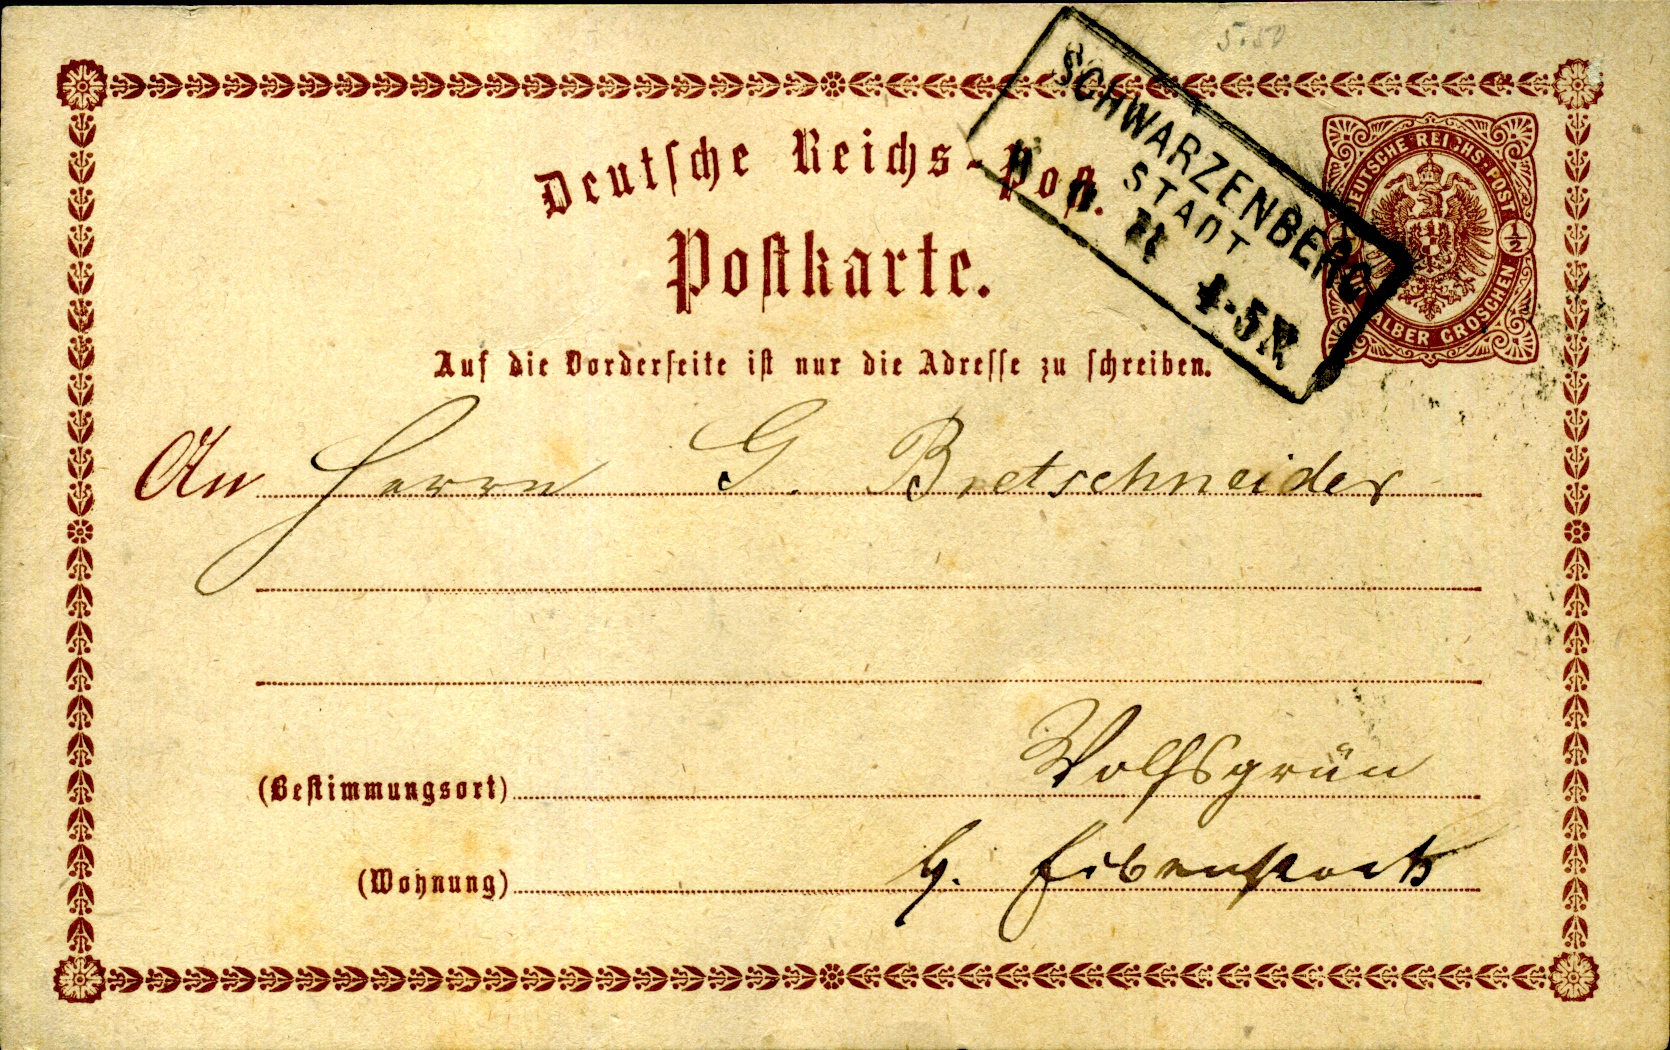 5.50
Deutsche Reichs-Post.
Postkarte.
SCHWARZENBERG
STADT
4-5N
DEUTSCHE REICHS-POST
½
HALBER GROSCHEN
Auf die Vorderseite ist nur die Adresse zu schreiben.
An Herrn G. Bretschneider
(Bestimmungsort) Wolfsgrün
(Wohnung) b. Eibenstock